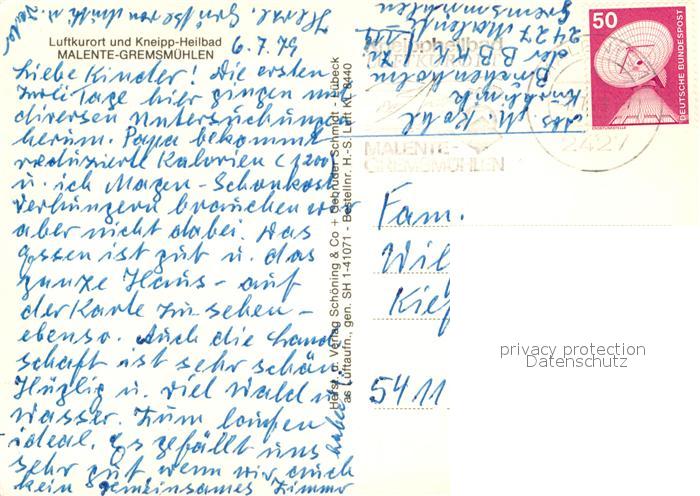 Luftkurort und Kneipp-Heilbad
MALENTE-GREMSMÜHLEN
6.7.79
Liebe Kinder! Die ersten
zwei Tage hier gingen mit
diversen Untersuchungen
herum. Papa bekommt
reduzierte Kalorien (1200)
u. ich Magen-Schonkost
verhungern brauchen wir
aber nicht dabei. Das
Essen ist gut u. das
ganze Haus - auf
der Karte zu sehen -
ebenso. Auch die Land
schaft ist sehr schön
Hüglig u. viel Wald u.
Wasser. Zum laufen
ideal. Es gefällt uns
sehr gut wenn wir auch
kein gemeinsames Zimmer
haben.
Herst. u. Verlag Schöning & Co + Gebrüder Schmidt - Lübeck
as Luftaufn., gen. SH 1-41071 - Bestellnr. H.-S. Luft KL 8440
Abs. M. Kohl
Kurklinik
Buchenholm
der BBK
2427 Malente
Gremsmühlen
50
DEUTSCHE BUNDESPOST
ERDEFUNKSTELLE
MALENTE-
GREMSMÜHLEN
2427
Fam.
Wil
Kief
5411
privacy protection
Datenschutz